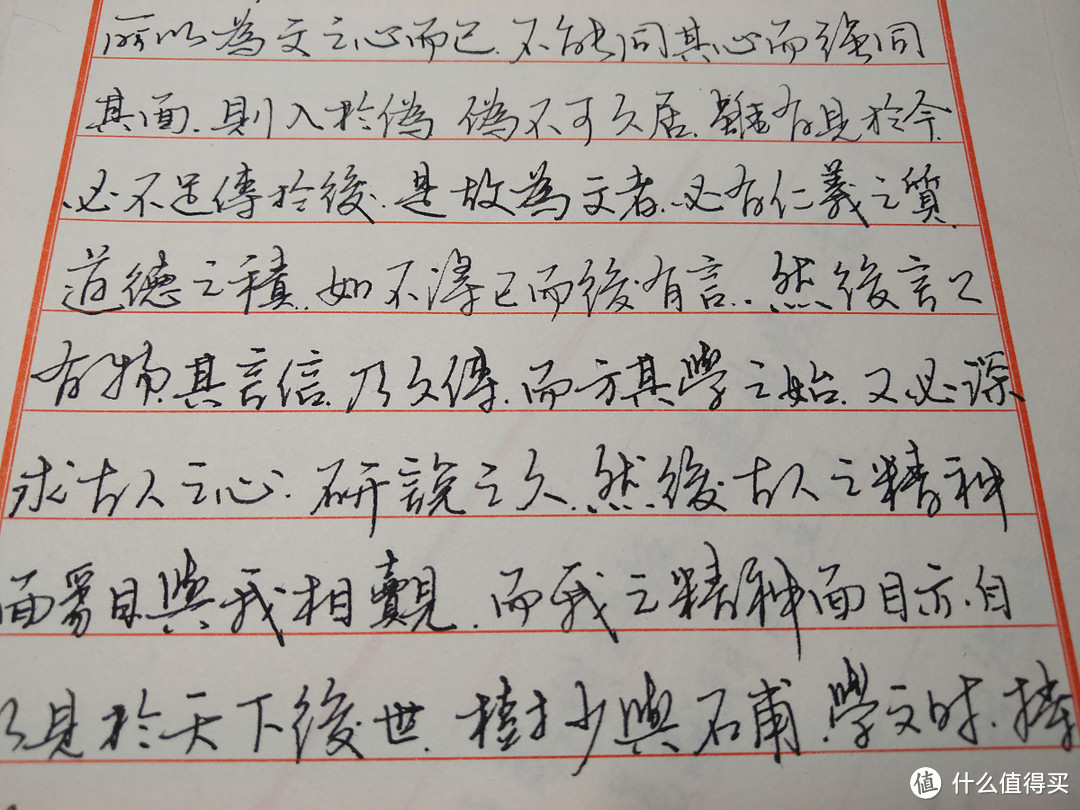 所以為文之心而已.不能同其心而強同
其面.則入於偽 偽不可久居.雖有見於今.
必不足傳於後.是故為文者.必有仁義之質.
道德之積.如不得已而後有言.然後言之
有物.其言信.乃久傳.而方其學之始.又必深
求古人之心.研說之久.然後古人之精神
面目與我相觀.而我之精神面目亦.自
以見於天下後世.樁抄與石甫.學文時.
值 什么值得买